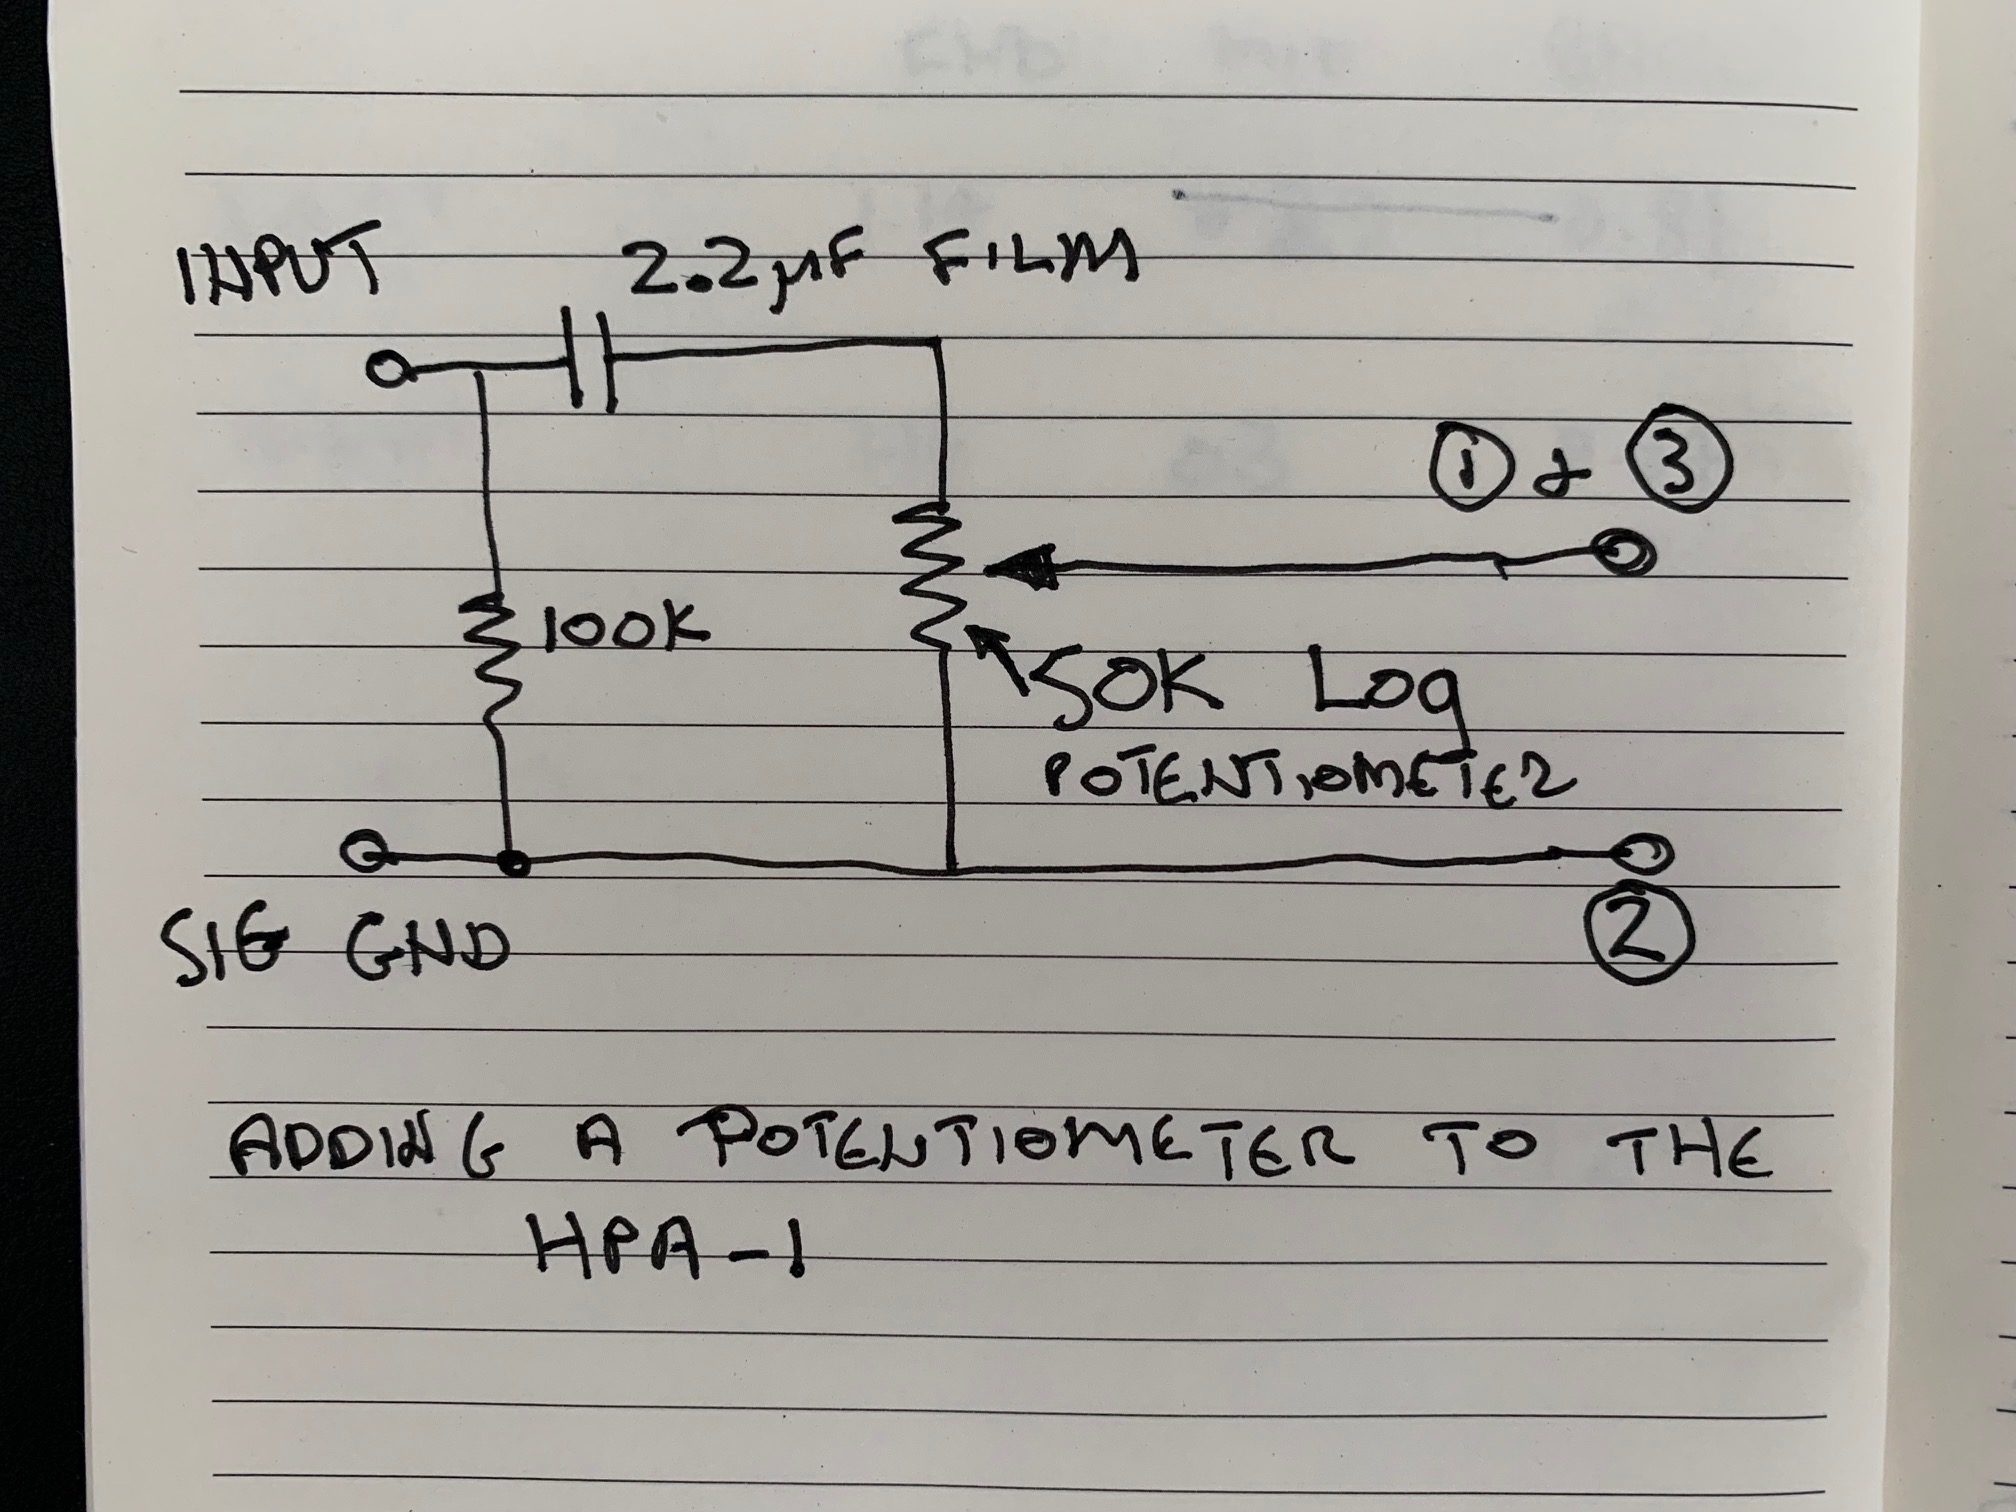 INPUT 2.2µF FILM
① & ③
100K
50K Log
POTENTIOMETER
SIG GND
②
ADDING A POTENTIOMETER TO THE
HPA-1